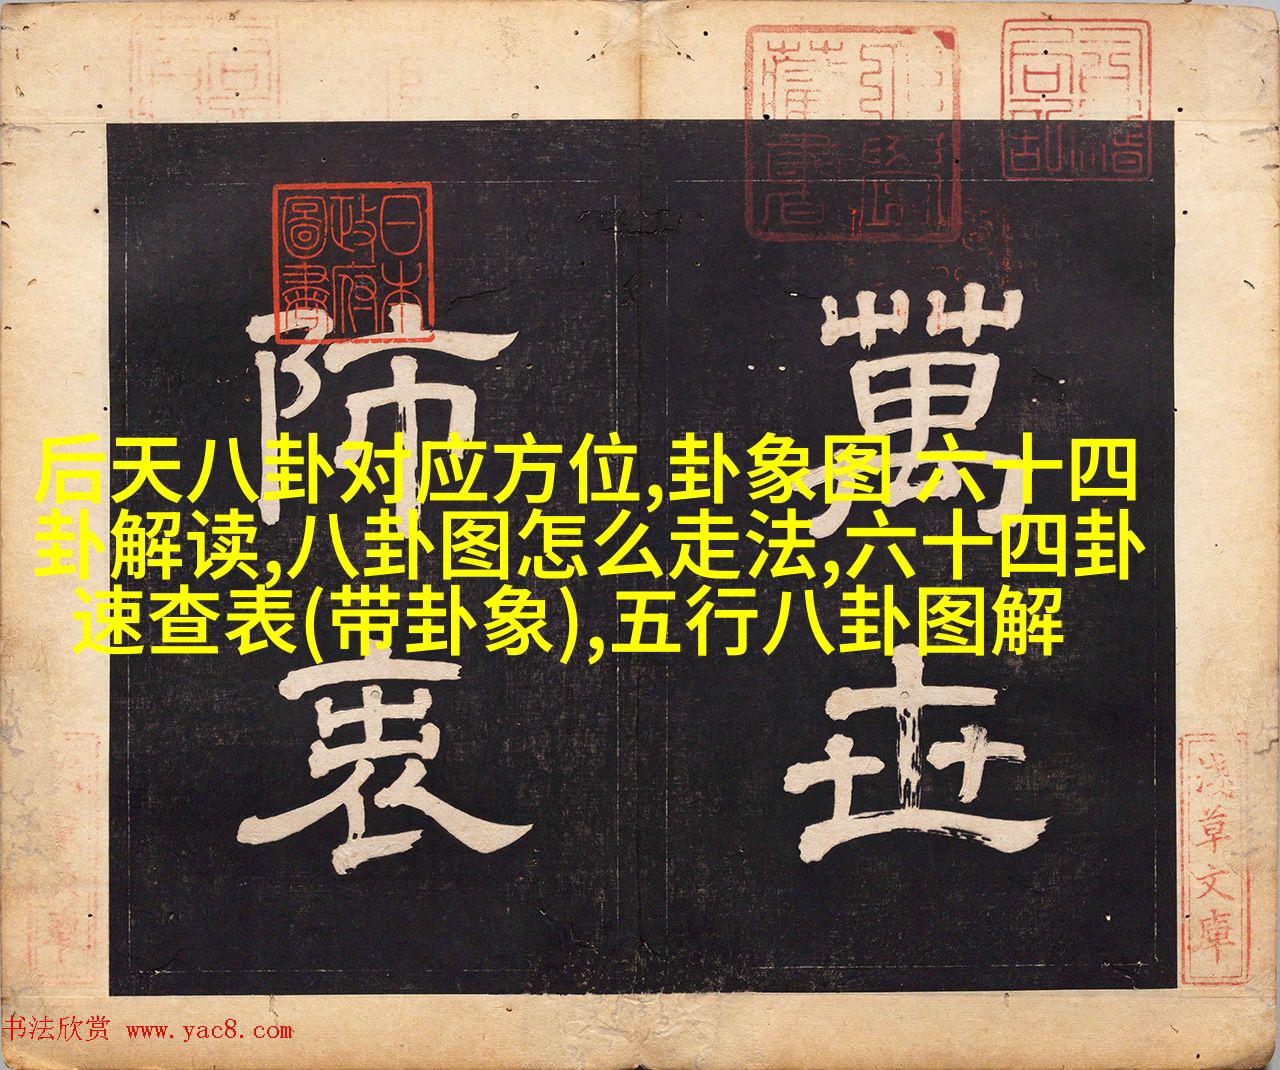 日本
政府
圖書
萬世
師表
后天八卦对应方位,卦象图 六十四
卦解读,八卦图怎么走法,六十四卦
速查表(带卦象),五行八卦图解
淺草文庫
书法欣赏 www.yac8.com